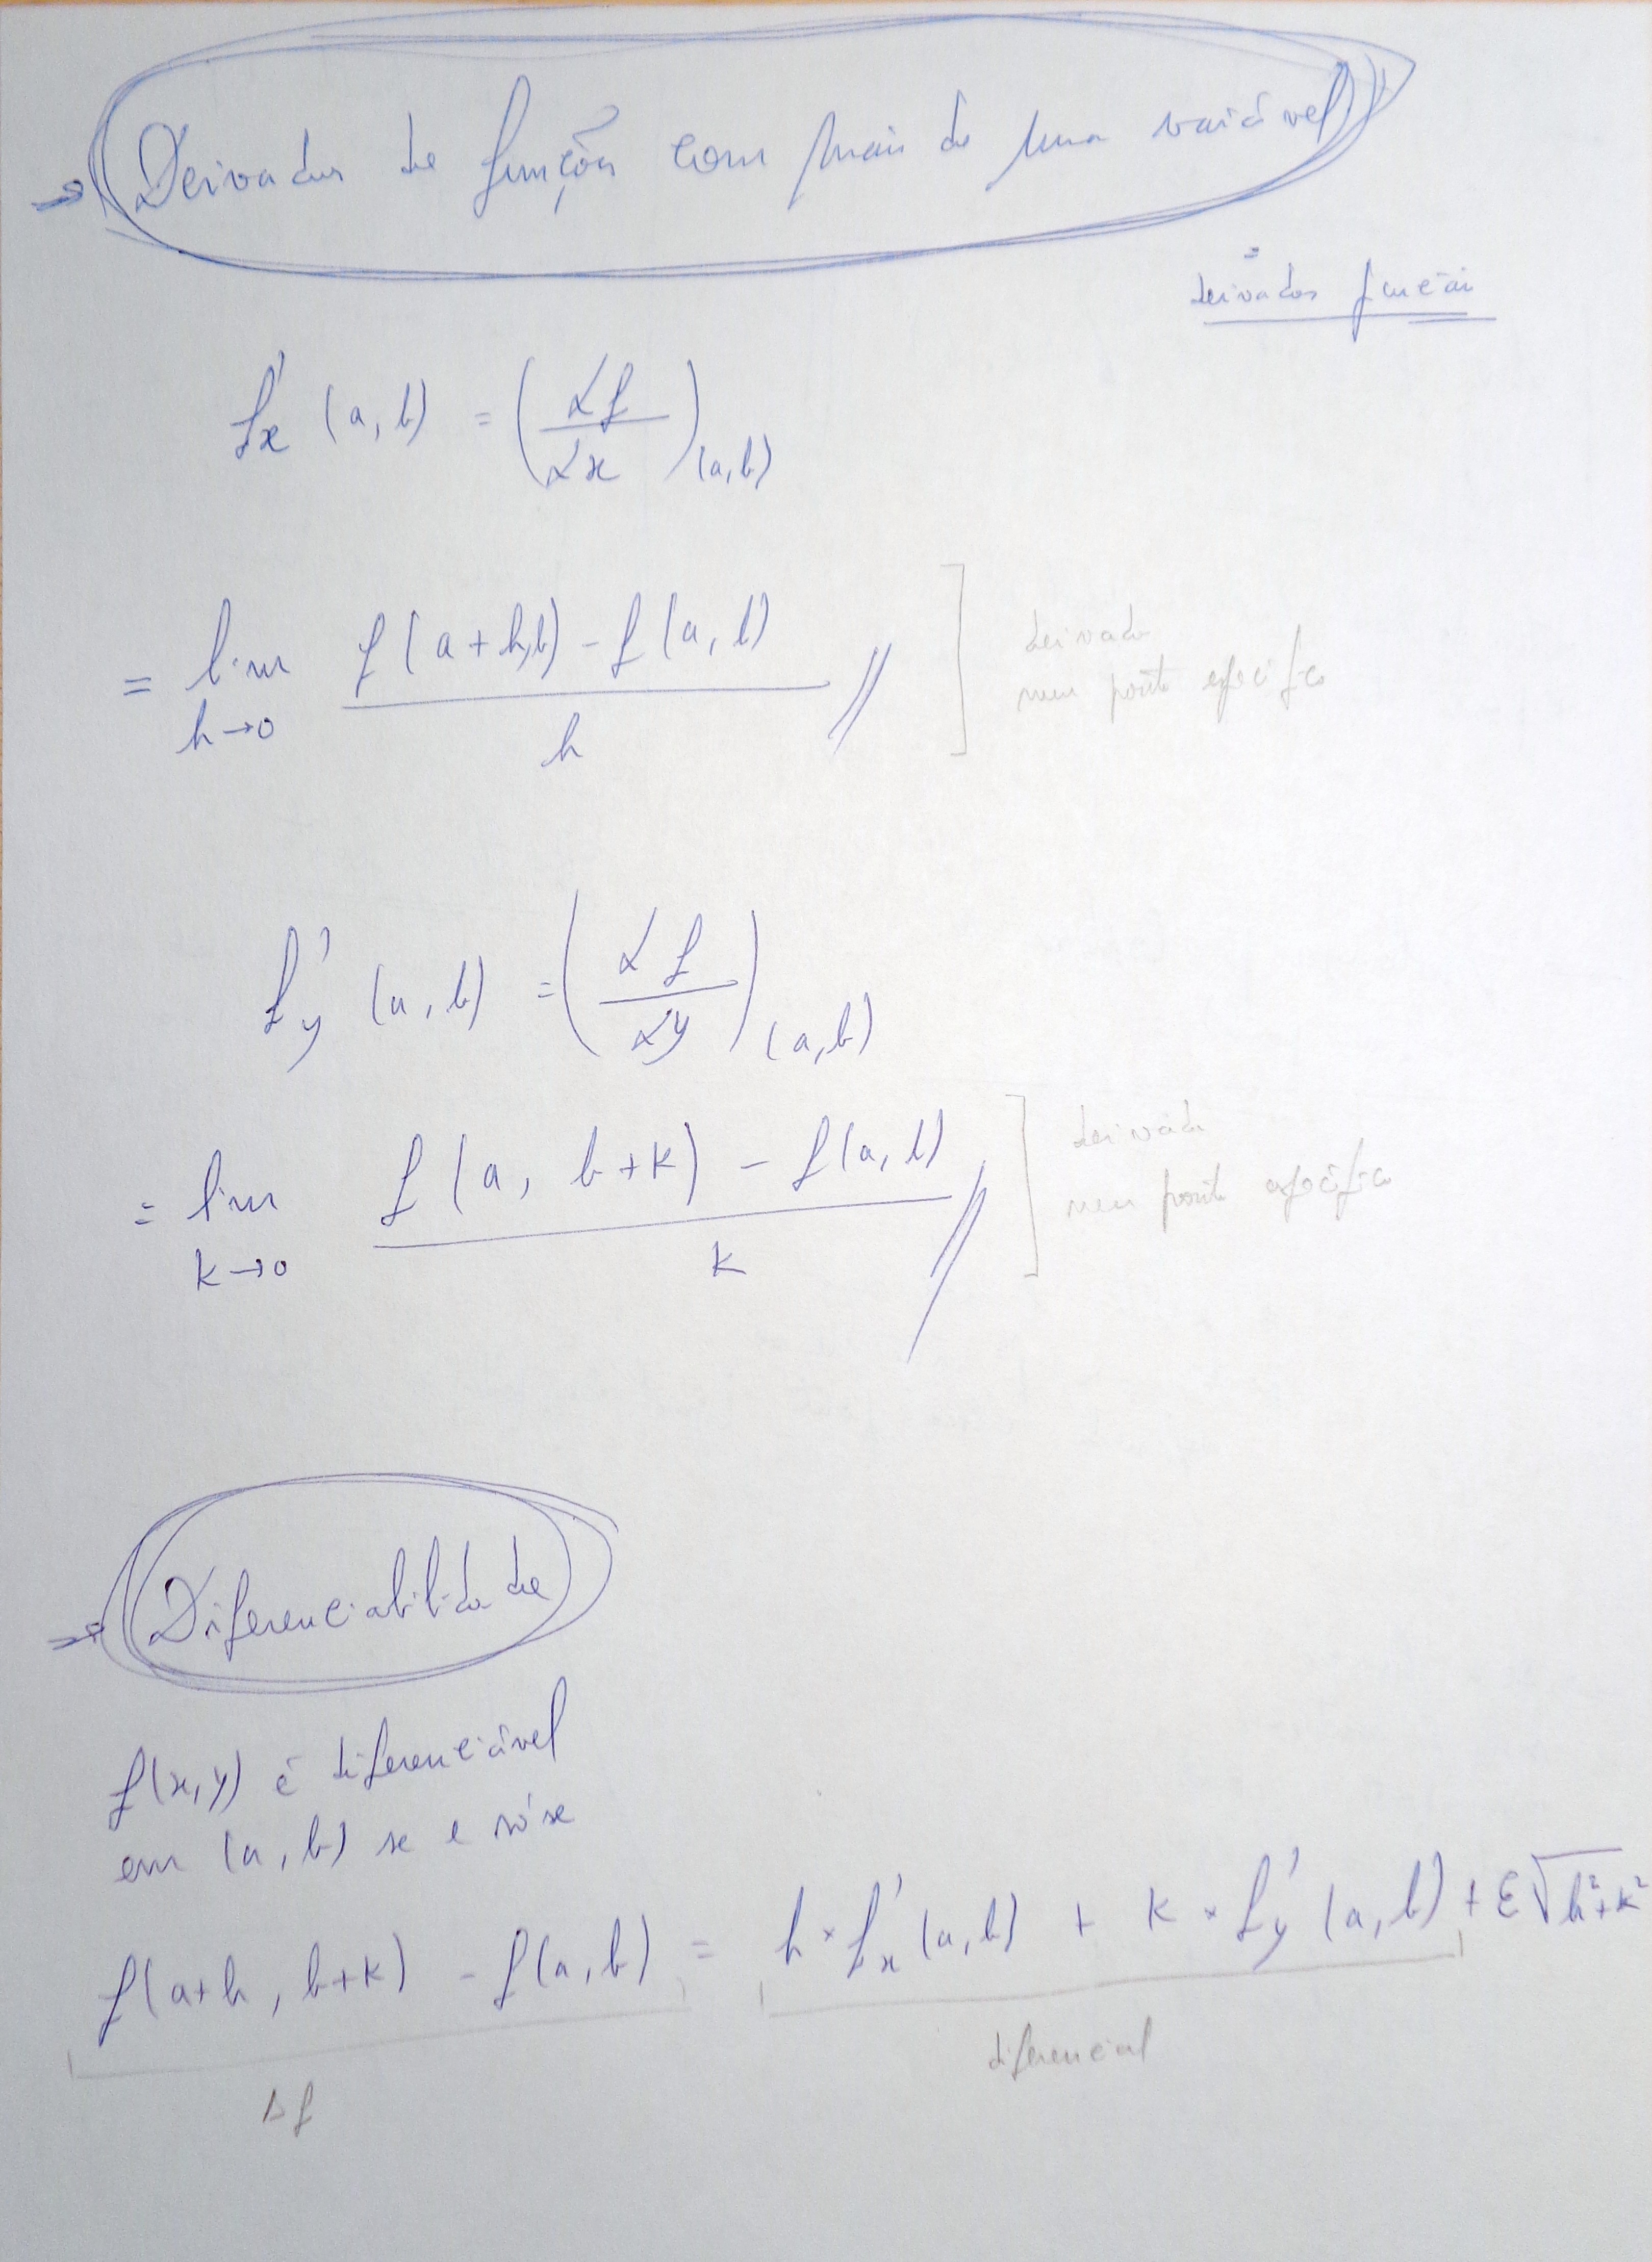 → Derivadas de funções com mais de uma variável
=
derivadas
f'x (a, b) = (∂f/∂x)(a, b)
= lim h→0 f(a+h, b) - f(a, b) / h ] derivada
num ponto específico
f'y (a, b) = (∂f/∂y)(a, b)
= lim k→0 f(a, b+k) - f(a, b) / k ] derivada
num ponto específico
→ Diferenciabilidade
f(x, y) é diferenciável
em (a, b) se e só se
f(a+h, b+k) - f(a, b) = h × f'x (a, b) + k × f'y (a, b) + ε√h²+k²
Δf
diferencial